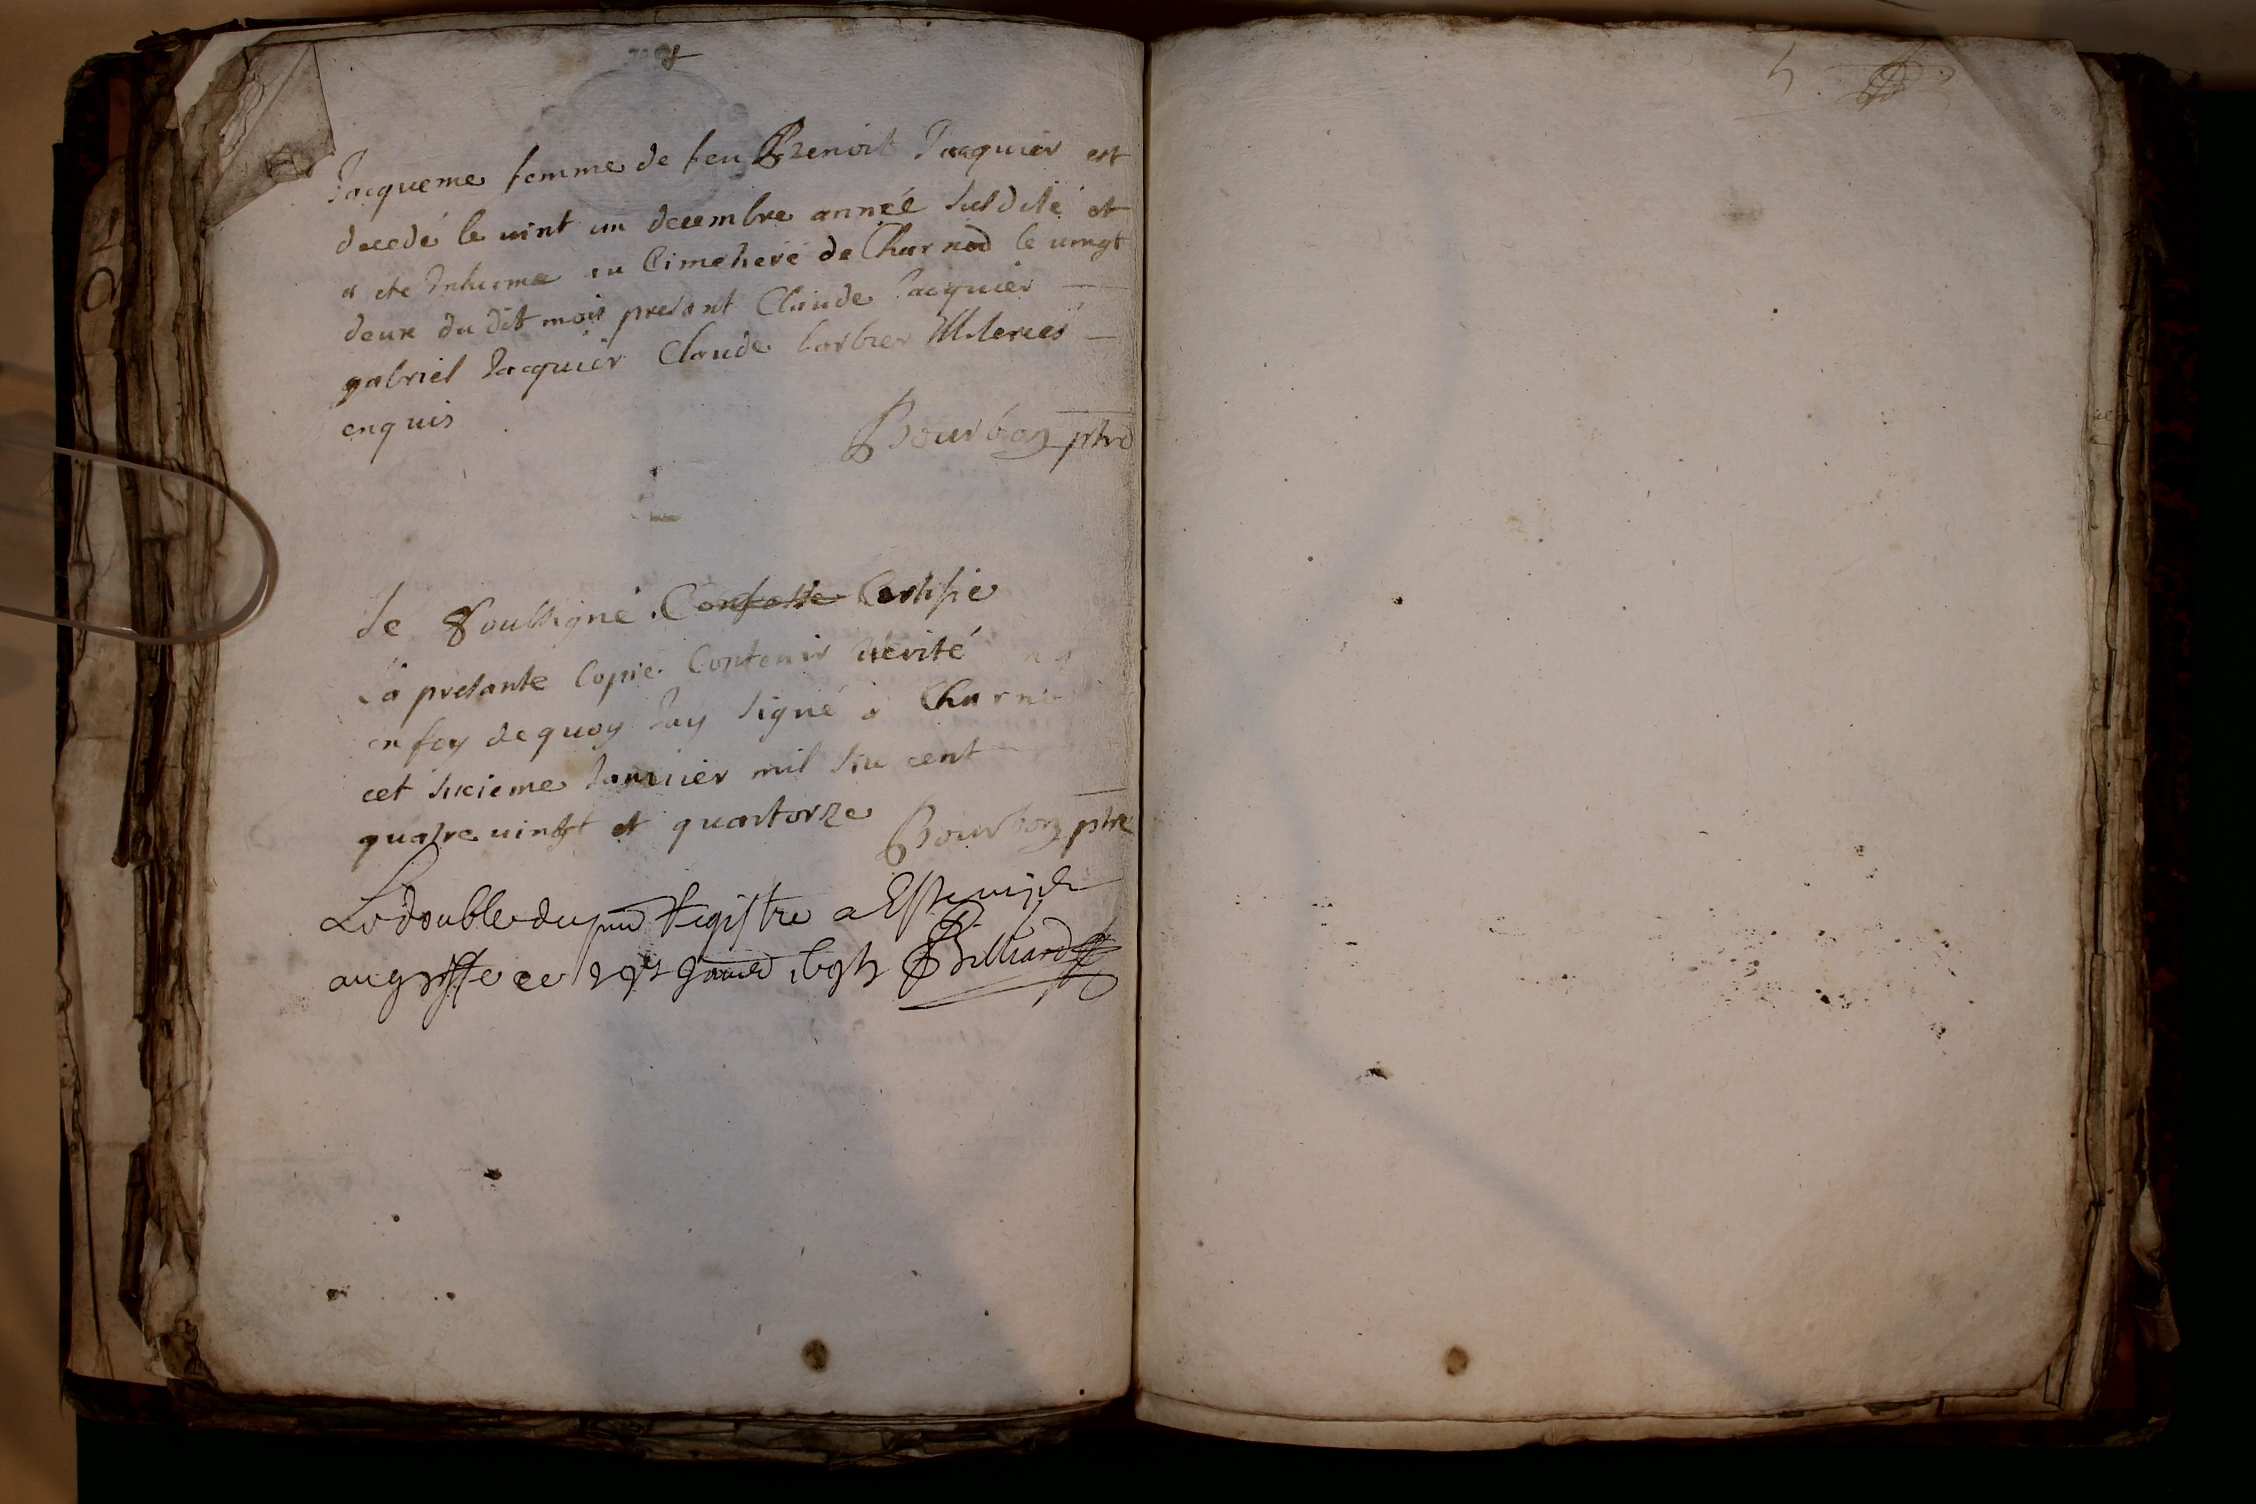 Jacqueme femme de feu Benoit Jacquier est
decedé le vint un decembre année susdité et
a ete Inhume au Cimetiere de Charnod le vingt
deux du dit mois presant Claude Jacquier
gabriel Jacquier Claude barbier Illeterés
enquis
Bourbon ptre
Je Soubsigné Confesse Certifie
La presante Copie Contenir verité
en foy de quoy Jay signé a Charno
cet sixieme Janvier mil six cent
quatre vintgt et quartorze
Bourbon ptre
Le double du pnt Registre a Esté mis
au greffe ce Janvier Billiard